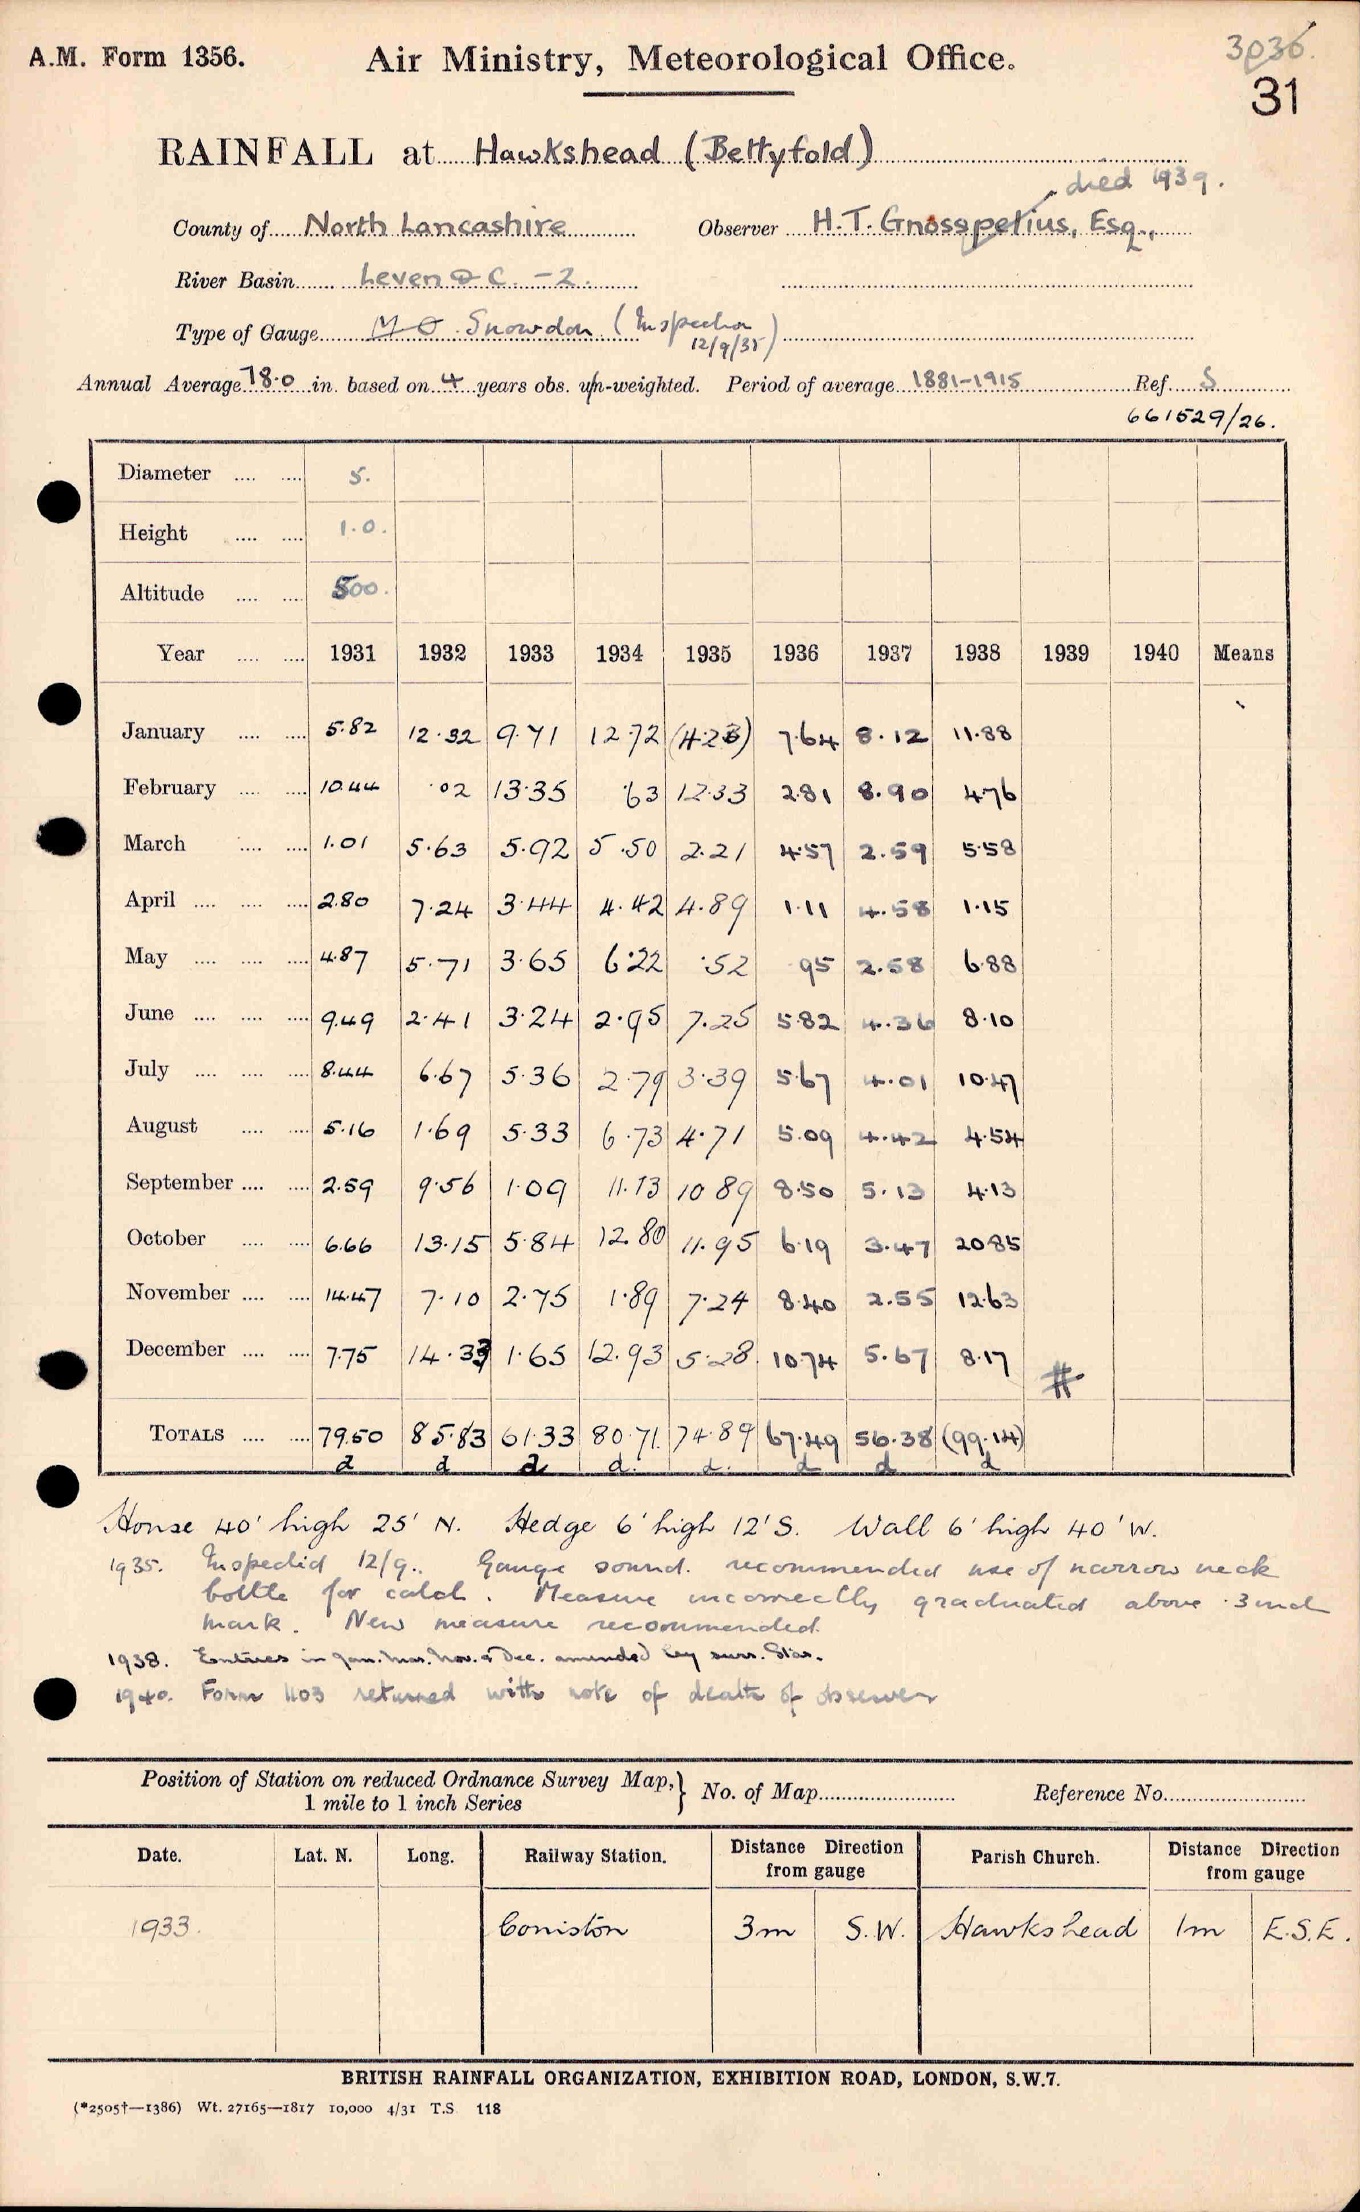 A.M. Form 1356.
Air Ministry, Meteorological Office.
3036.
31
RAINFALL at Hawkshead (Bettyfold)
died 1939.
County of North Lancashire Observer H.T. Gnosspelius, Esq.,
River Basin Leven & C. -2.
Type of Gauge M O Snowdon (Inspection 12/9/35)
Annual Average 78.0 in. based on 4 years obs. un-weighted. Period of average 1881-1915 Ref. S
661529/26.
Diameter 5.
Height 1.0.
Altitude 500.
Year 1931 1932 1933 1934 1935 1936 1937 1938 1939 1940 Means
January 5.82 12.32 9.71 12.72 (4.23) 7.64 8.12 11.88
February 10.44 .02 13.35 .63 12.33 2.81 8.90 4.76
March 1.01 5.63 5.92 5.50 2.21 4.57 2.59 5.58
April 2.80 7.24 3.44 4.42 4.89 1.11 4.58 1.15
May 4.87 5.71 3.65 6.22 .52 .95 2.58 6.88
June 9.49 2.41 3.24 2.95 7.25 5.82 4.36 8.10
July 8.44 6.67 5.36 2.79 3.39 5.67 4.01 10.47
August 5.16 1.69 5.33 6.73 4.71 5.09 4.42 4.54
September 2.59 9.56 1.09 11.13 10 89 8.50 5.13 4.13
October 6.66 13.15 5.84 12.80 11.95 6.19 3.47 20.85
November 14.47 7.10 2.75 1.89 7.24 8.40 2.55 12.63
December 7.75 14.33 1.65 12.93 5.28 10.74 5.67 8.17 #
TOTALS 79.50 85.83 61.33 80.71 74.89 67.49 56.38 (99.14)
d d d d. d. d d d
House 40' high 25' N. Hedge 6' high 12' S. Wall 6' high 40' W.
1935. Inspected 12/9. Gauge sound. recommended use of narrow neck
bottle for catch. Measure incorrectly graduated above .3 inch
mark. New measure recommended.
1938. Entries in Jan. Mar. Nov. & Dec. amended by surr. Stas.
1940. Form 1103 returned with note of death of observer
Position of Station on reduced Ordnance Survey Map,} No. of Map Reference No.
1 mile to 1 inch Series
Date. Lat. N. Long. Railway Station. Distance Direction from gauge Parish Church. Distance Direction from gauge
1933. Coniston 3m S.W. Hawkshead 1m E.S.E.
BRITISH RAINFALL ORGANIZATION, EXHIBITION ROAD, LONDON, S.W.7.
(*2505†—1386) Wt. 27165—1817 10,000 4/31 T.S. 118